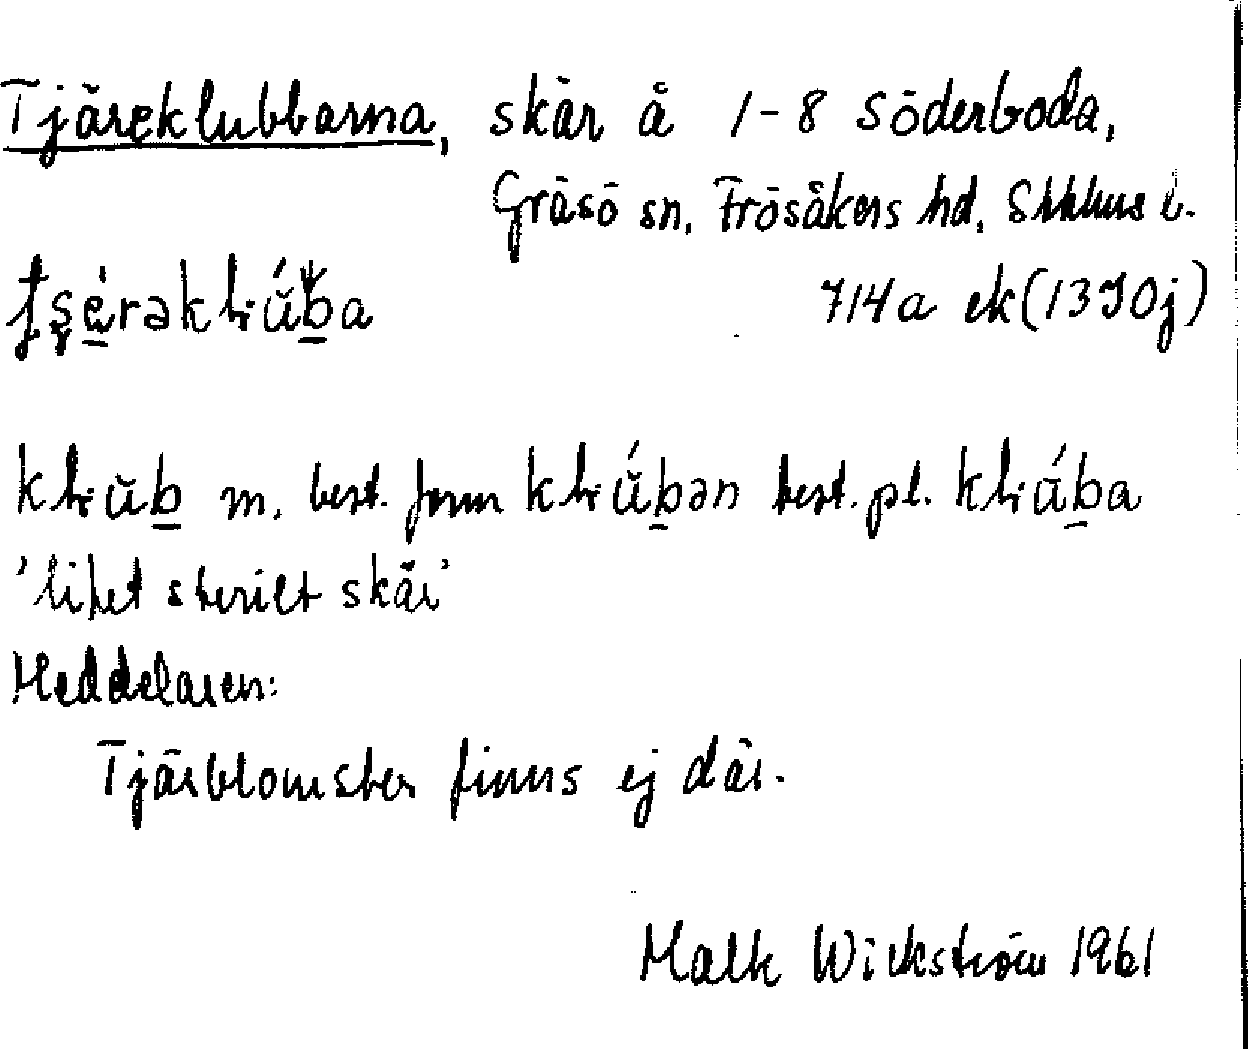 Tjäreklubbarna, skär å 1-8 Söderboda,
Gräsö sn, Frösåkers hd, Sthlms l.
714a ek (13I0j)
m. best. form best. pl.
'litet sterilt skär'
Meddelaren:
Tjärblomster finns ej där.
Matk Wickström 1961